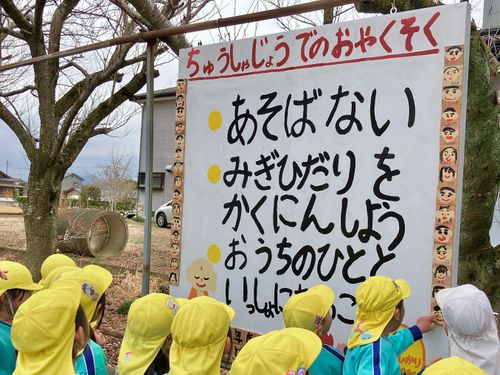 ぢゅうしゃじょうでのおやくそく
あそばない
みぎひだりを
かくにんしよう
おうちのひとと
いっしょに